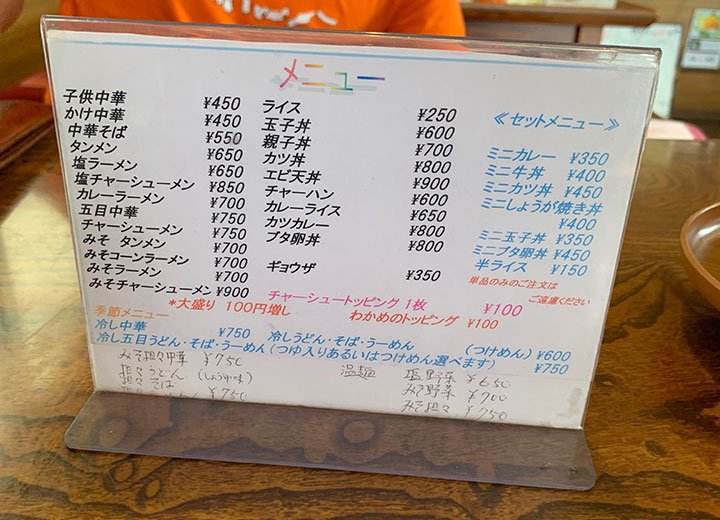 メニュー
子供中華 ¥450
かけ中華 ¥450
中華そば ¥550
タンメン ¥650
塩ラーメン ¥650
塩チャーシューメン ¥850
カレーラーメン ¥700
五目中華 ¥750
チャーシューメン ¥750
みそ タンメン ¥700
みそコーンラーメン ¥700
みそラーメン ¥700
みそチャーシューメン ¥900
ライス ¥250
玉子丼 ¥600
親子丼 ¥700
カツ丼 ¥800
エビ天丼 ¥900
チャーハン ¥600
カレーライス ¥650
カツカレー ¥800
ブタ卵丼 ¥800
ギョウザ ¥350
≪セットメニュー≫
ミニカレー ¥350
ミニ牛丼 ¥400
ミニカツ丼 ¥450
ミニしょうが焼き丼
¥400
ミニ玉子丼 ¥350
ミニブタ卵丼 ¥450
半ライス ¥150
単品のみのご注文は
ご遠慮ください
チャーシュートッピング 1枚 ¥100
*大盛り 100円増し わかめのトッピング ¥100
季節メニュー
冷し中華 ¥750 冷しうどん・そば・らーめん (つけめん) ¥600
冷し五目うどん・そば・らーめん (つゆ入りあるいはつけめん選べます) ¥750
みそ担々中華 ¥750
担々うどん (しょうゆ味)
担々そば ¥750
温麺
塩野菜 ¥650
みそ野菜 ¥700
みそ担々 ¥750